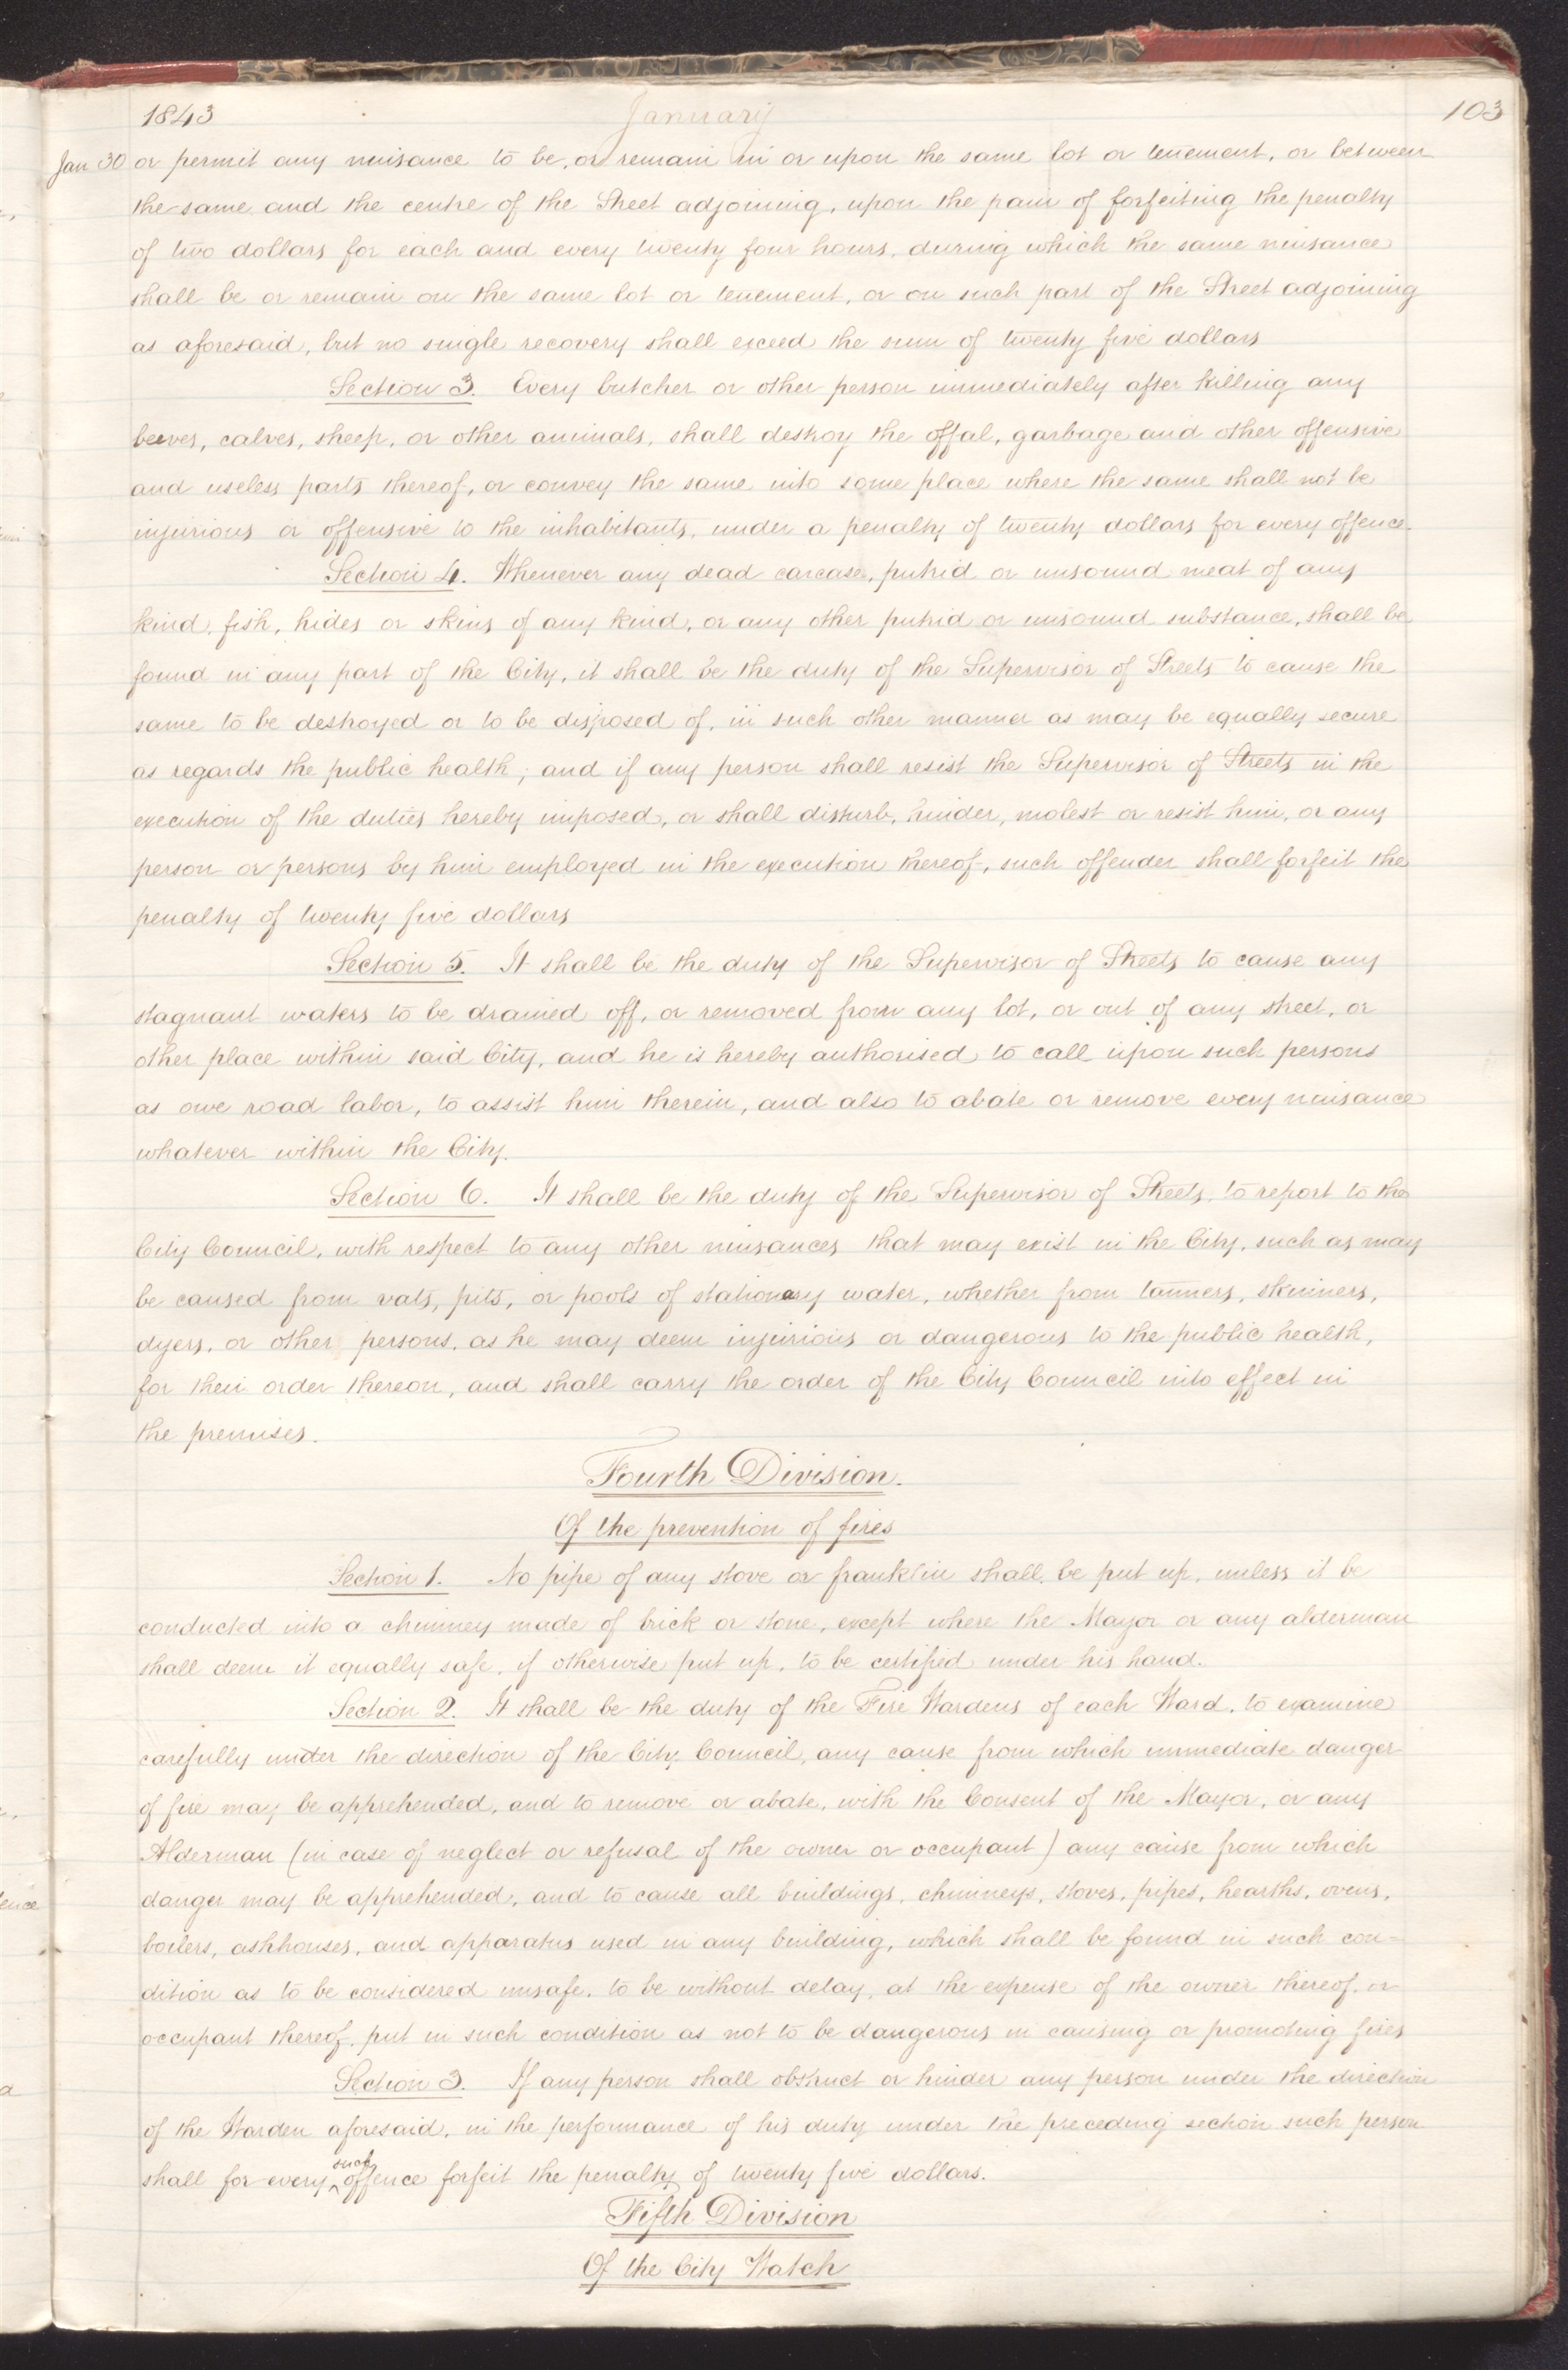 1843 January 103
Jan 30 or permit any nuisance to be, or remain in or upon the same lot or tenement, or between
the same and the centre of the Street adjoining, upon the pain of forfeiting the penalty
of two dollars for each and every twenty four hours, during which the same nuisance
shall be or remain on the same lot or tenement, or on such part of the Street adjoining
as aforesaid, but no single recovery shall exceed the sum of twenty five dollars
Section 3. Every butcher or other person immediately after killing any
beeves, calves, sheep, or other animals, shall destroy the offal, garbage and other offensive
and useless parts thereof, or convey the same into some place where the same shall not be
injurious or offensive to the inhabitants, under a penalty of twenty dollars for every offence.
Section 4. Whenever any dead carcase, putrid or unsound meat of any
kind, fish, hides or skins of any kind, or any other putrid or unsound substance, shall be
found in any part of the City, it shall be the duty of the Supervisor of Streets to cause the
same to be destroyed or to be disposed of, in such other manner as may be equally secure
as regards the public health; and if any person shall resist the Supervisor of Streets in the
execution of the duties hereby imposed, or shall disturb, hinder, molest or resist him, or any
person or persons by him employed in the execution thereof, such offender shall forfeit the
penalty of twenty five dollars
Section 5. It shall be the duty of the Supervisor of Streets to cause any
stagnant waters to be drained off, or removed from any lot, or out of any street, or
other place within said City, and he is hereby authorised to call upon such persons
as owe road labor, to assist him therein, and also to abate or remove every nuisance
whatever within the City.
Section 6. It shall be the duty of the Supervisor of Streets, to report to the
City Council, with respect to any other nuisances that may exist in the City, such as may
be caused from vats, pits, or pools of stationary water, whether from tanners, skinners,
dyers, or other persons, as he may deem injurious or dangerous to the public health,
for their order thereon, and shall carry the order of the City Council into effect in
the premises.
Fourth Division.
Of the prevention of fires
Section 1. No pipe of any stove or franklin shall be put up, unless it be
conducted into a chimney made of brick or stone, except where the Mayor or any alderman
shall deem it equally safe, if otherwise put up, to be certified under his hand.
Section 2. It shall be the duty of the Fire Wardens of each Ward, to examine
carefully under the direction of the City Council, any cause from which immediate danger
of fire may be apprehended, and to remove or abate, with the Consent of the Mayor, or any
Alderman (in case of neglect or refusal of the owner or occupant) any cause from which
danger may be apprehended, and to cause all buildings, chimneys, stoves, pipes, hearths, ovens,
boilers, ashhouses, and apparatus used in any building, which shall be found in such con=
dition as to be considered unsafe, to be without delay, at the expense of the owner thereof, or
occupant thereof, put in such condition as not to be dangerous in causing or promoting fires
Section 3. If any person shall obstruct or hinder any person under the direction
of the Warden aforesaid, in the performance of his duty under the preceding section such person
shall for every such offence forfeit the penalty of twenty five dollars.
Fifth Division
Of the City Watch